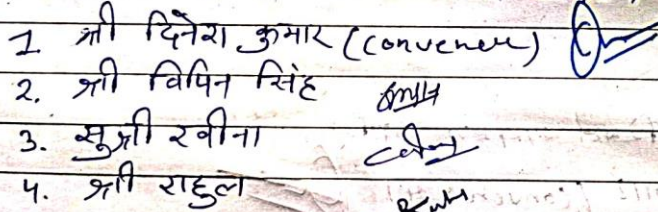 1 श्री दिनेश कुमार (convener)
2. श्री विपिन सिंह
3. सुश्री रवीना
4. श्री राहुल